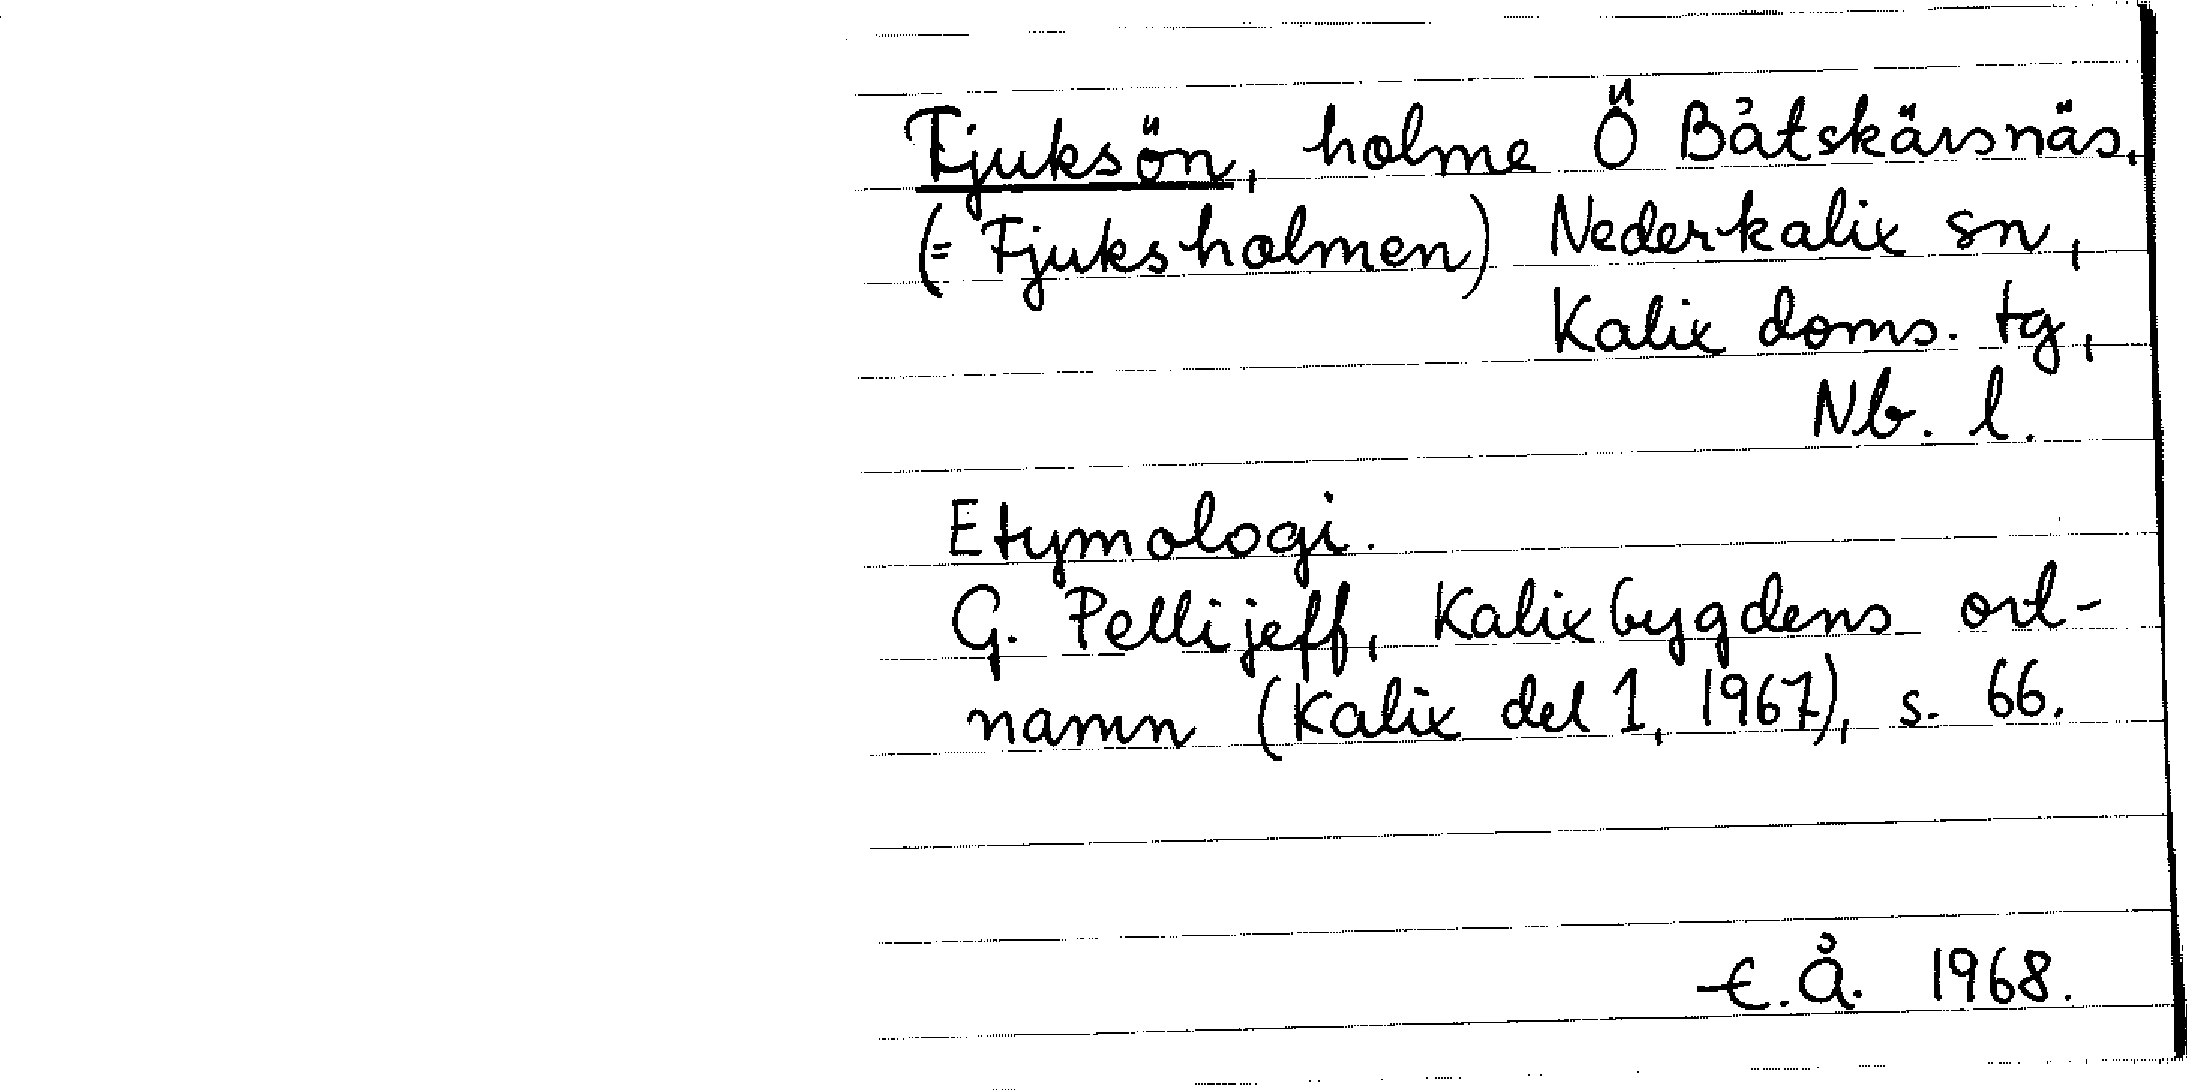 Fjuksön, holme Ö Båtskärsnäs,
(= Fjuksholmen) Nederkalix sn,
Kalix doms. tg,
Nb. l.
Etymologi.
G. Pellijeff, Kalixbygdens ort-
namn (Kalix del 1, 1967), s. 66.
E.Å. 1968.